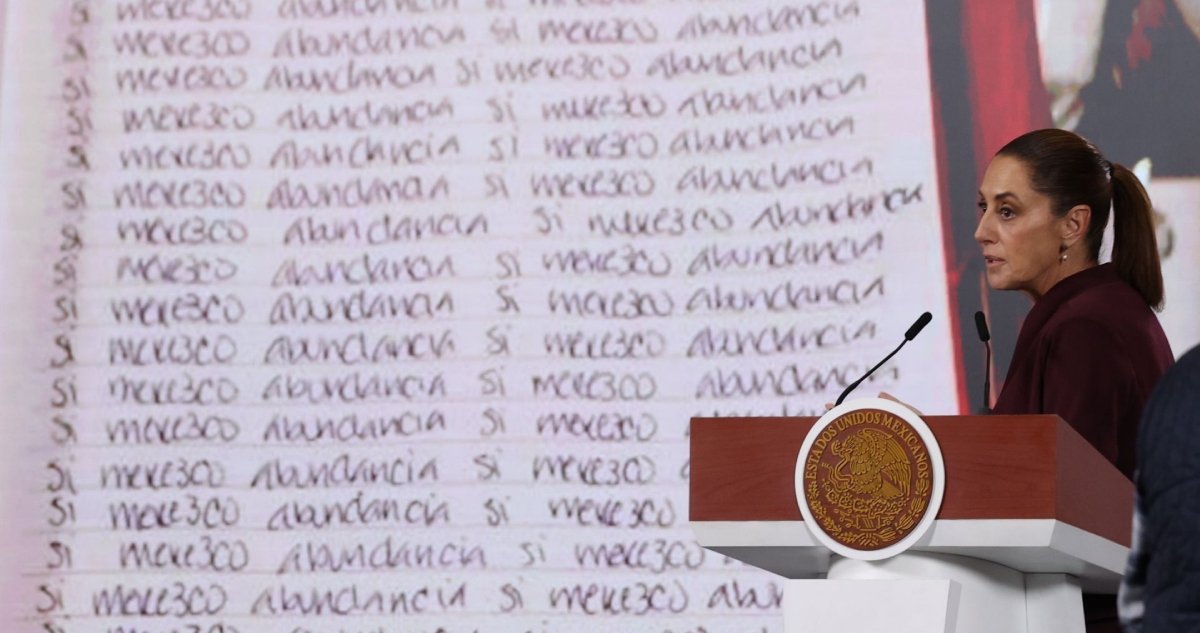 si merezco abundancia si merezco abundancia
si merezco abundancia si merezco abundancia
si merezco abundancia si merezco abundancia
si merezco abundancia si merezco abundancia
si merezco abundancia si merezco abundancia
si merezco abundancia si merezco abundancia
si merezco abundancia si merezco abundancia
si merezco abundancia si merezco abundancia
si merezco abundancia si merezco abundancia
si merezco abundancia si merezco abundancia
si merezco abundancia si merezco abundancia
si merezco abundancia si merezco
si merezco abundancia si merezco
si merezco abundancia si merezco
si merezco abundancia si merezco
si merezco abundancia si merezco
ESTADOS UNIDOS MEXICANOS